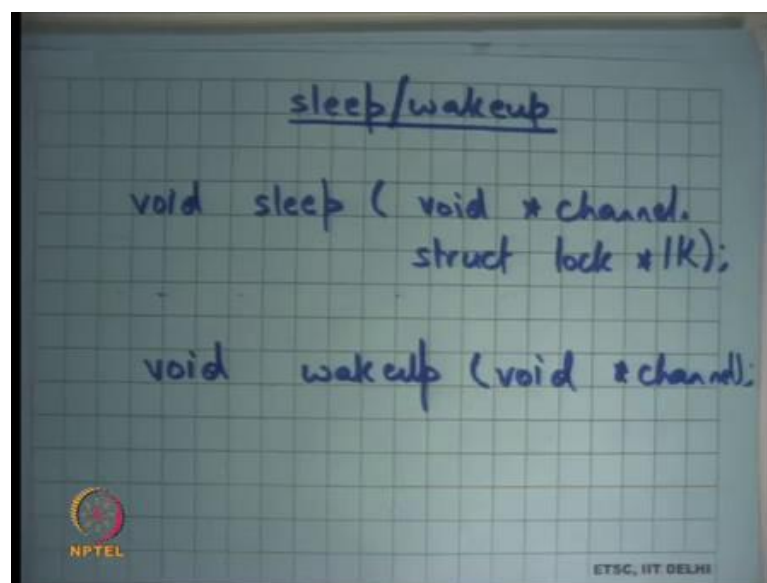 sleep/wakeup
void sleep ( void * channel.
struct lock * lk);
void wakeup (void * channel);
NPTEL
ETSC, IIT DELHI